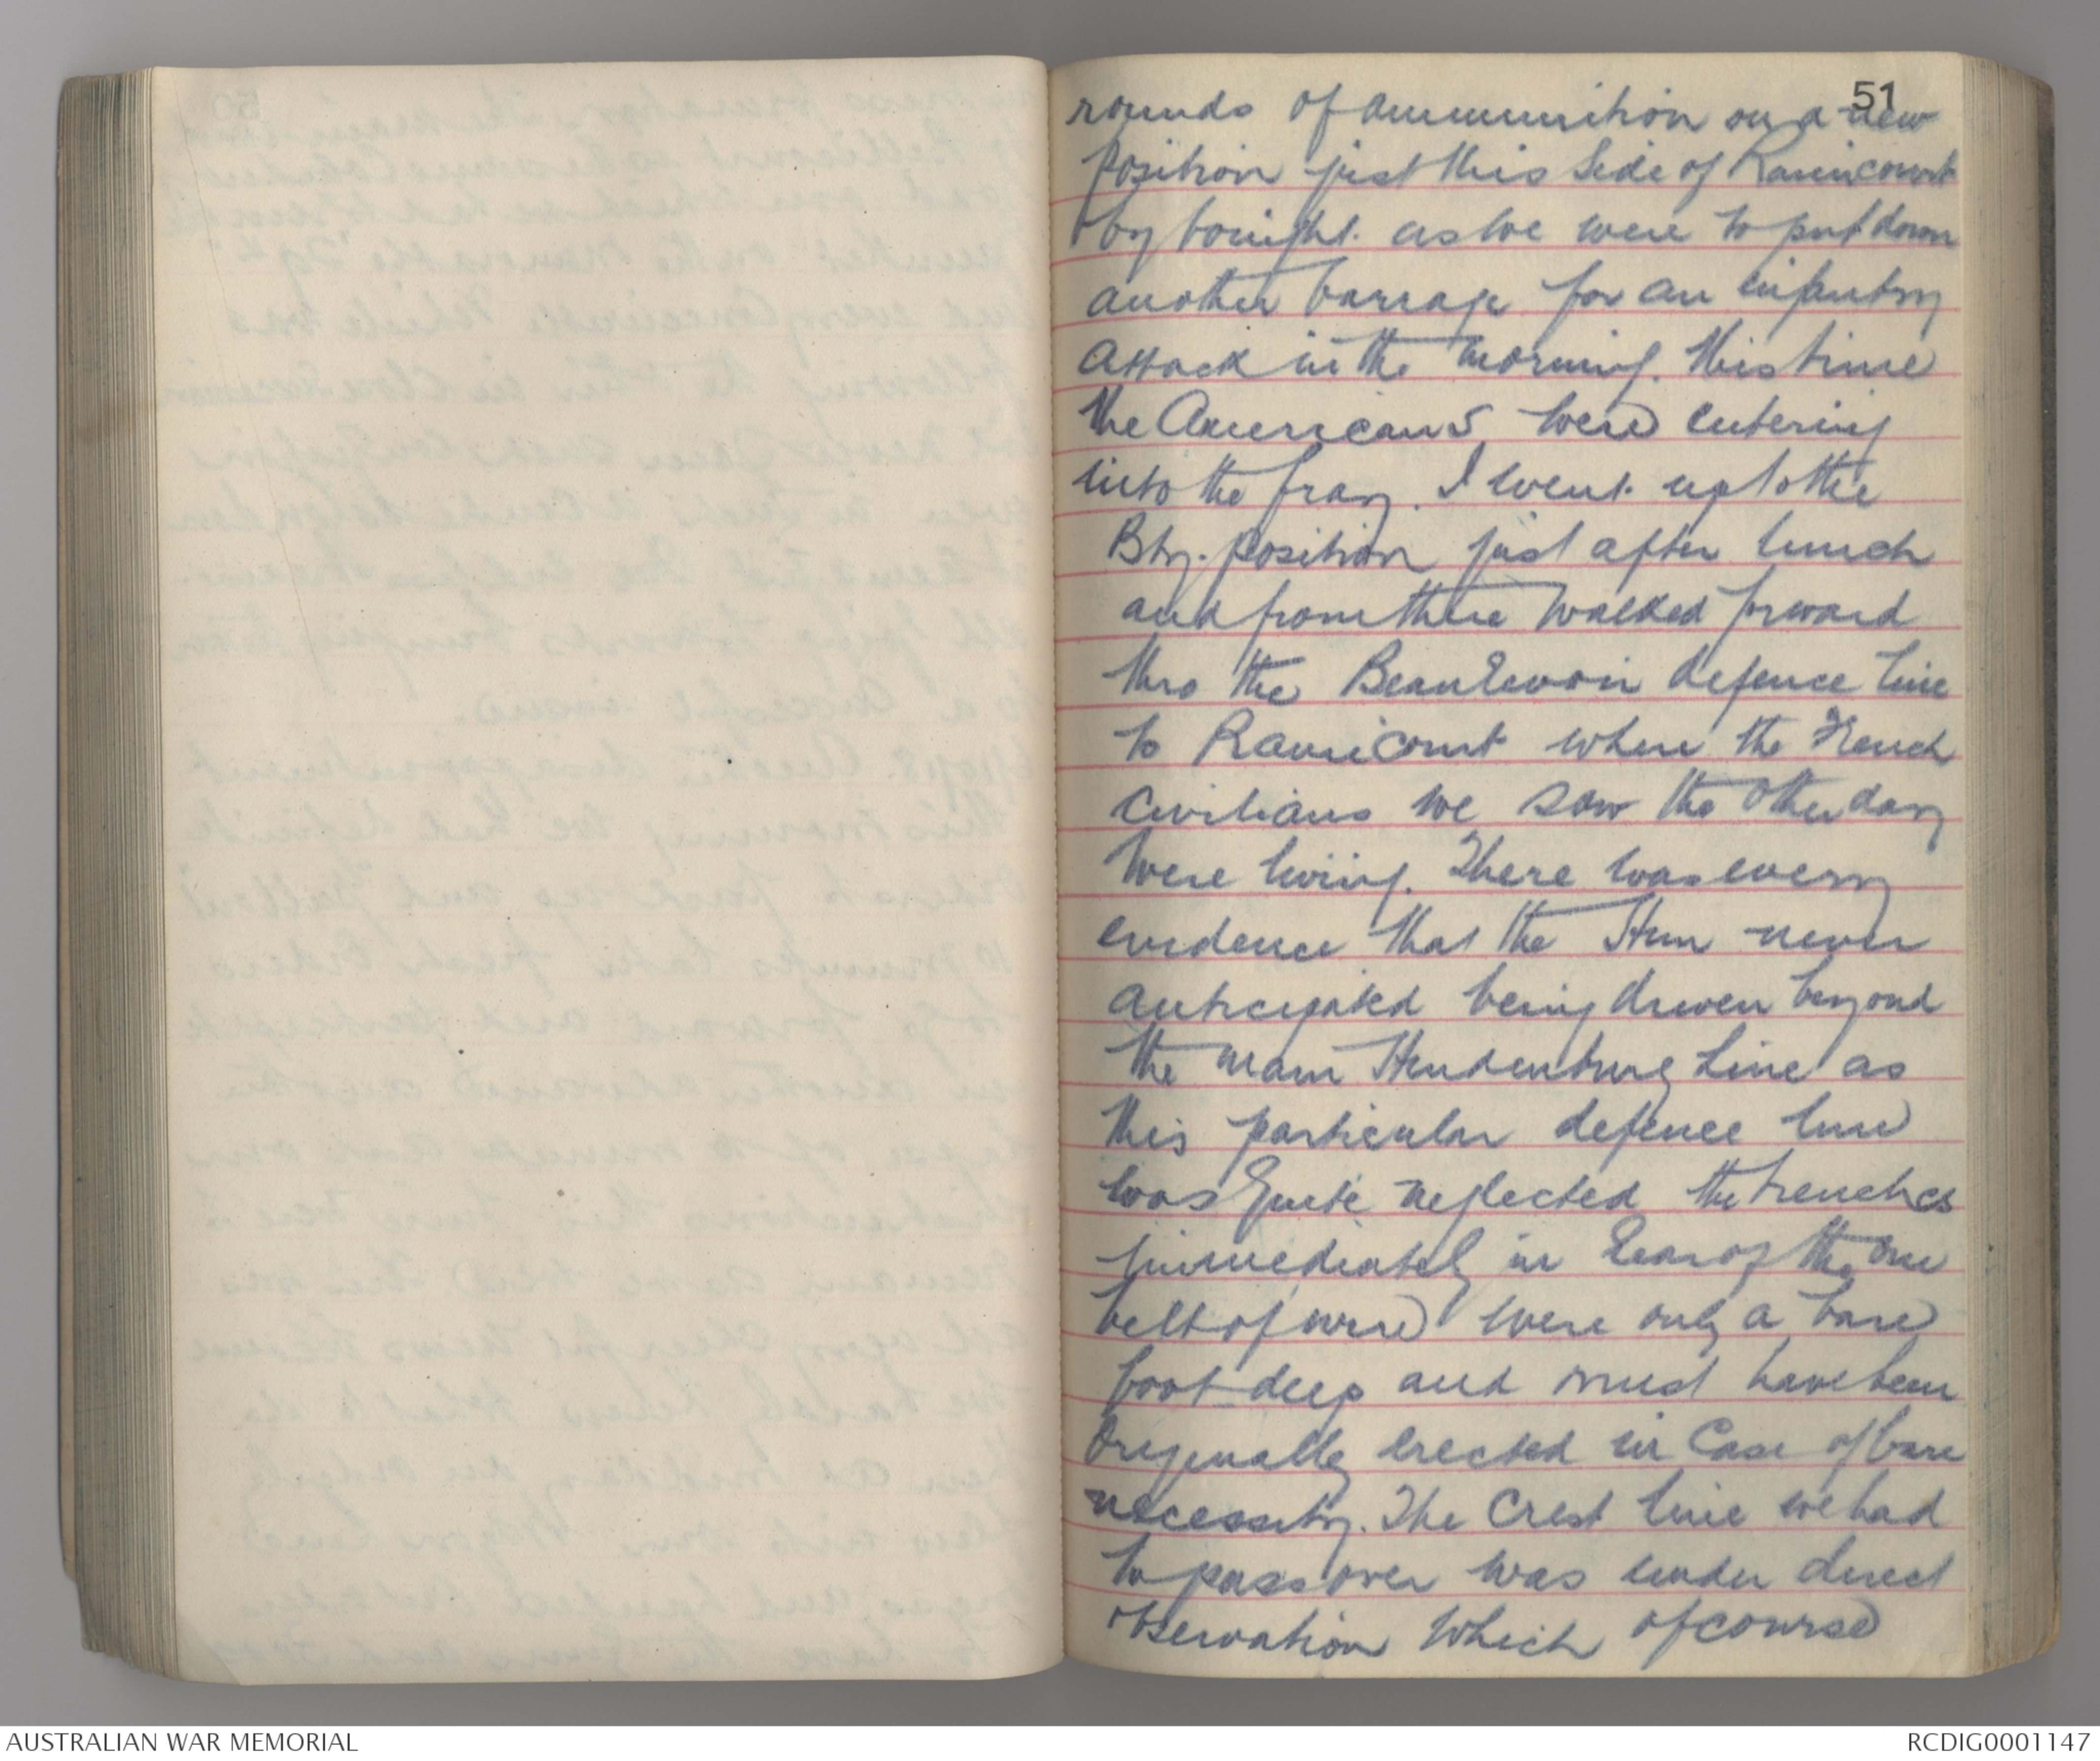 51
rounds of ammunition on a new
position just this side of Ramicourt
by tonight. as we were to put down
another barrage for an infantry
attack in the morning. This time
the Americans were entering
into the fray. I went up to the
Bty. position just after lunch
and from there walked forward
thro the Beaurevoir defence line
to Ramicourt where the French
civilians we saw the other day
were living. There was every
evidence that the Hun never
anticipated being driven beyond
the main Hindenburg Line as
this particular defence line
was quite neglected the trenches
immediately in rear of the one
belt of wire were only a bare
foot deep and must have been
originally erected in case of bare
necessity. The Crest line we had
to pass over was under direct
observation which of course
AUSTRALIAN WAR MEMORIAL
RCDIG0001147